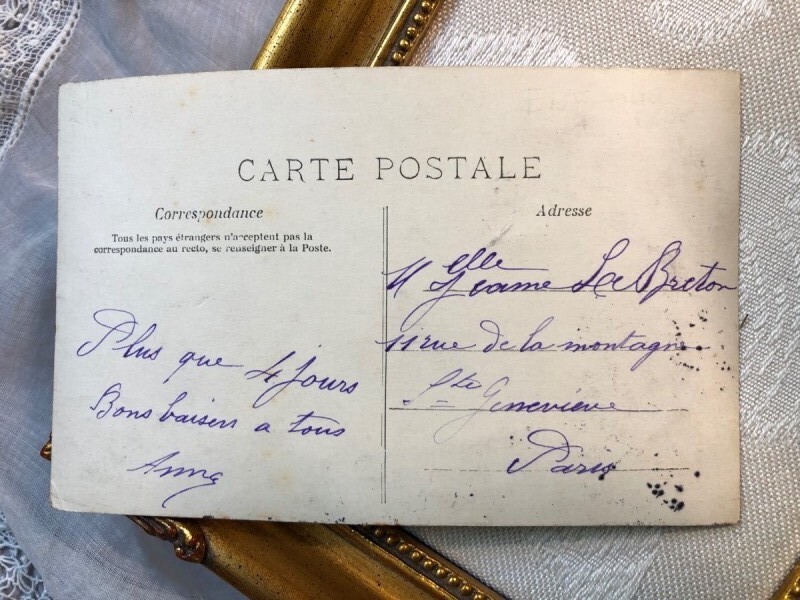 CARTE POSTALE
Correspondance
Tous les pays étrangers n'acceptent pas la
correspondance au recto, se renseigner à la Poste.
Plus que 4 jours
Bons baisers a tous
Anna
Adresse
Melle Jeanne Le Breton
11 rue de la montagne
Ste Geneviève
Paris